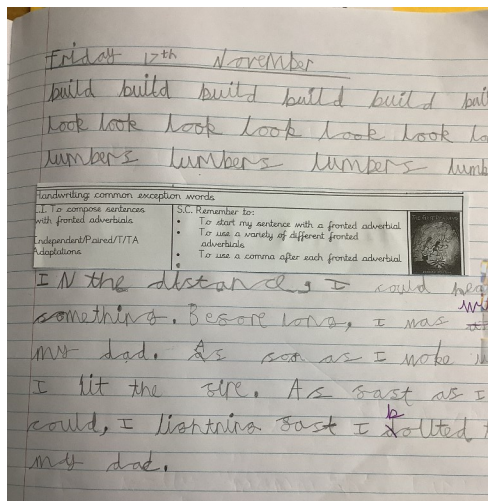 Friday 17th November
build build build build build
look look look look look look
lumbers lumbers lumbers
Handwriting: common exception words
L.I. To compose sentences with fronted adverbials
Independent/Paired/T/TA
Adaptations
S.C. Remember to:
• To start my sentence with a fronted adverbial
• To use a variety of different fronted adverbials
• To use a comma after each fronted adverbial
IN the distance, I could
something. Before long, I was
my dad. As soon as I woke
I lit the fire. As fast as I
could, I lightning fast I bolted
my dad.